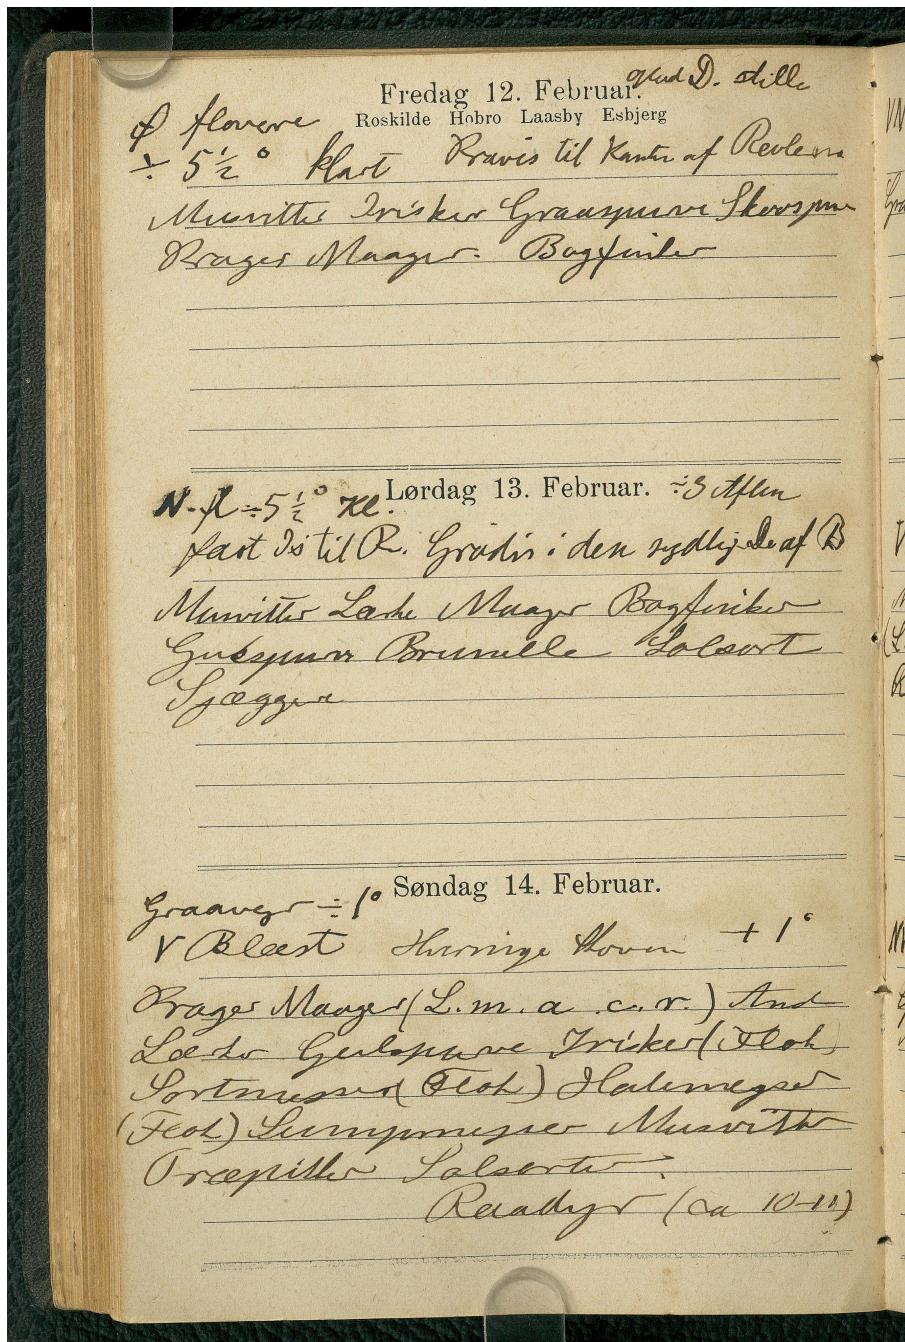 Fredag 12. Februar. D. stille
Roskilde Hobro Laasby Esbjerg
Ø flovere
÷ 5½° klart Kravis til Kanten af Revlerne
Musvitter Irisker Graaspurve Skovspurve
Krager Maager. Bogfinker
Lørdag 13. Februar. ÷3 Aften
N. ÷5½° Kl.
fast Is til R. Grødis i den sydlige De af B
Musvitter Lærke Maager Bogfinker
Gulspurve Brunelle Solsort
Sjaggere
Søndag 14. Februar.
Graavejr ÷1°
V Blæst Hverringe Skoven +1°
Krager Maager (L. m. a. c. r.) And
Lærke Gulspurve Irisker (Flok)
Sortmejser (Flok) Halemejser
(Flok) Sumpmejser Musvitter
Træpikker Solsorter.
Raadyr (ca 10-11)